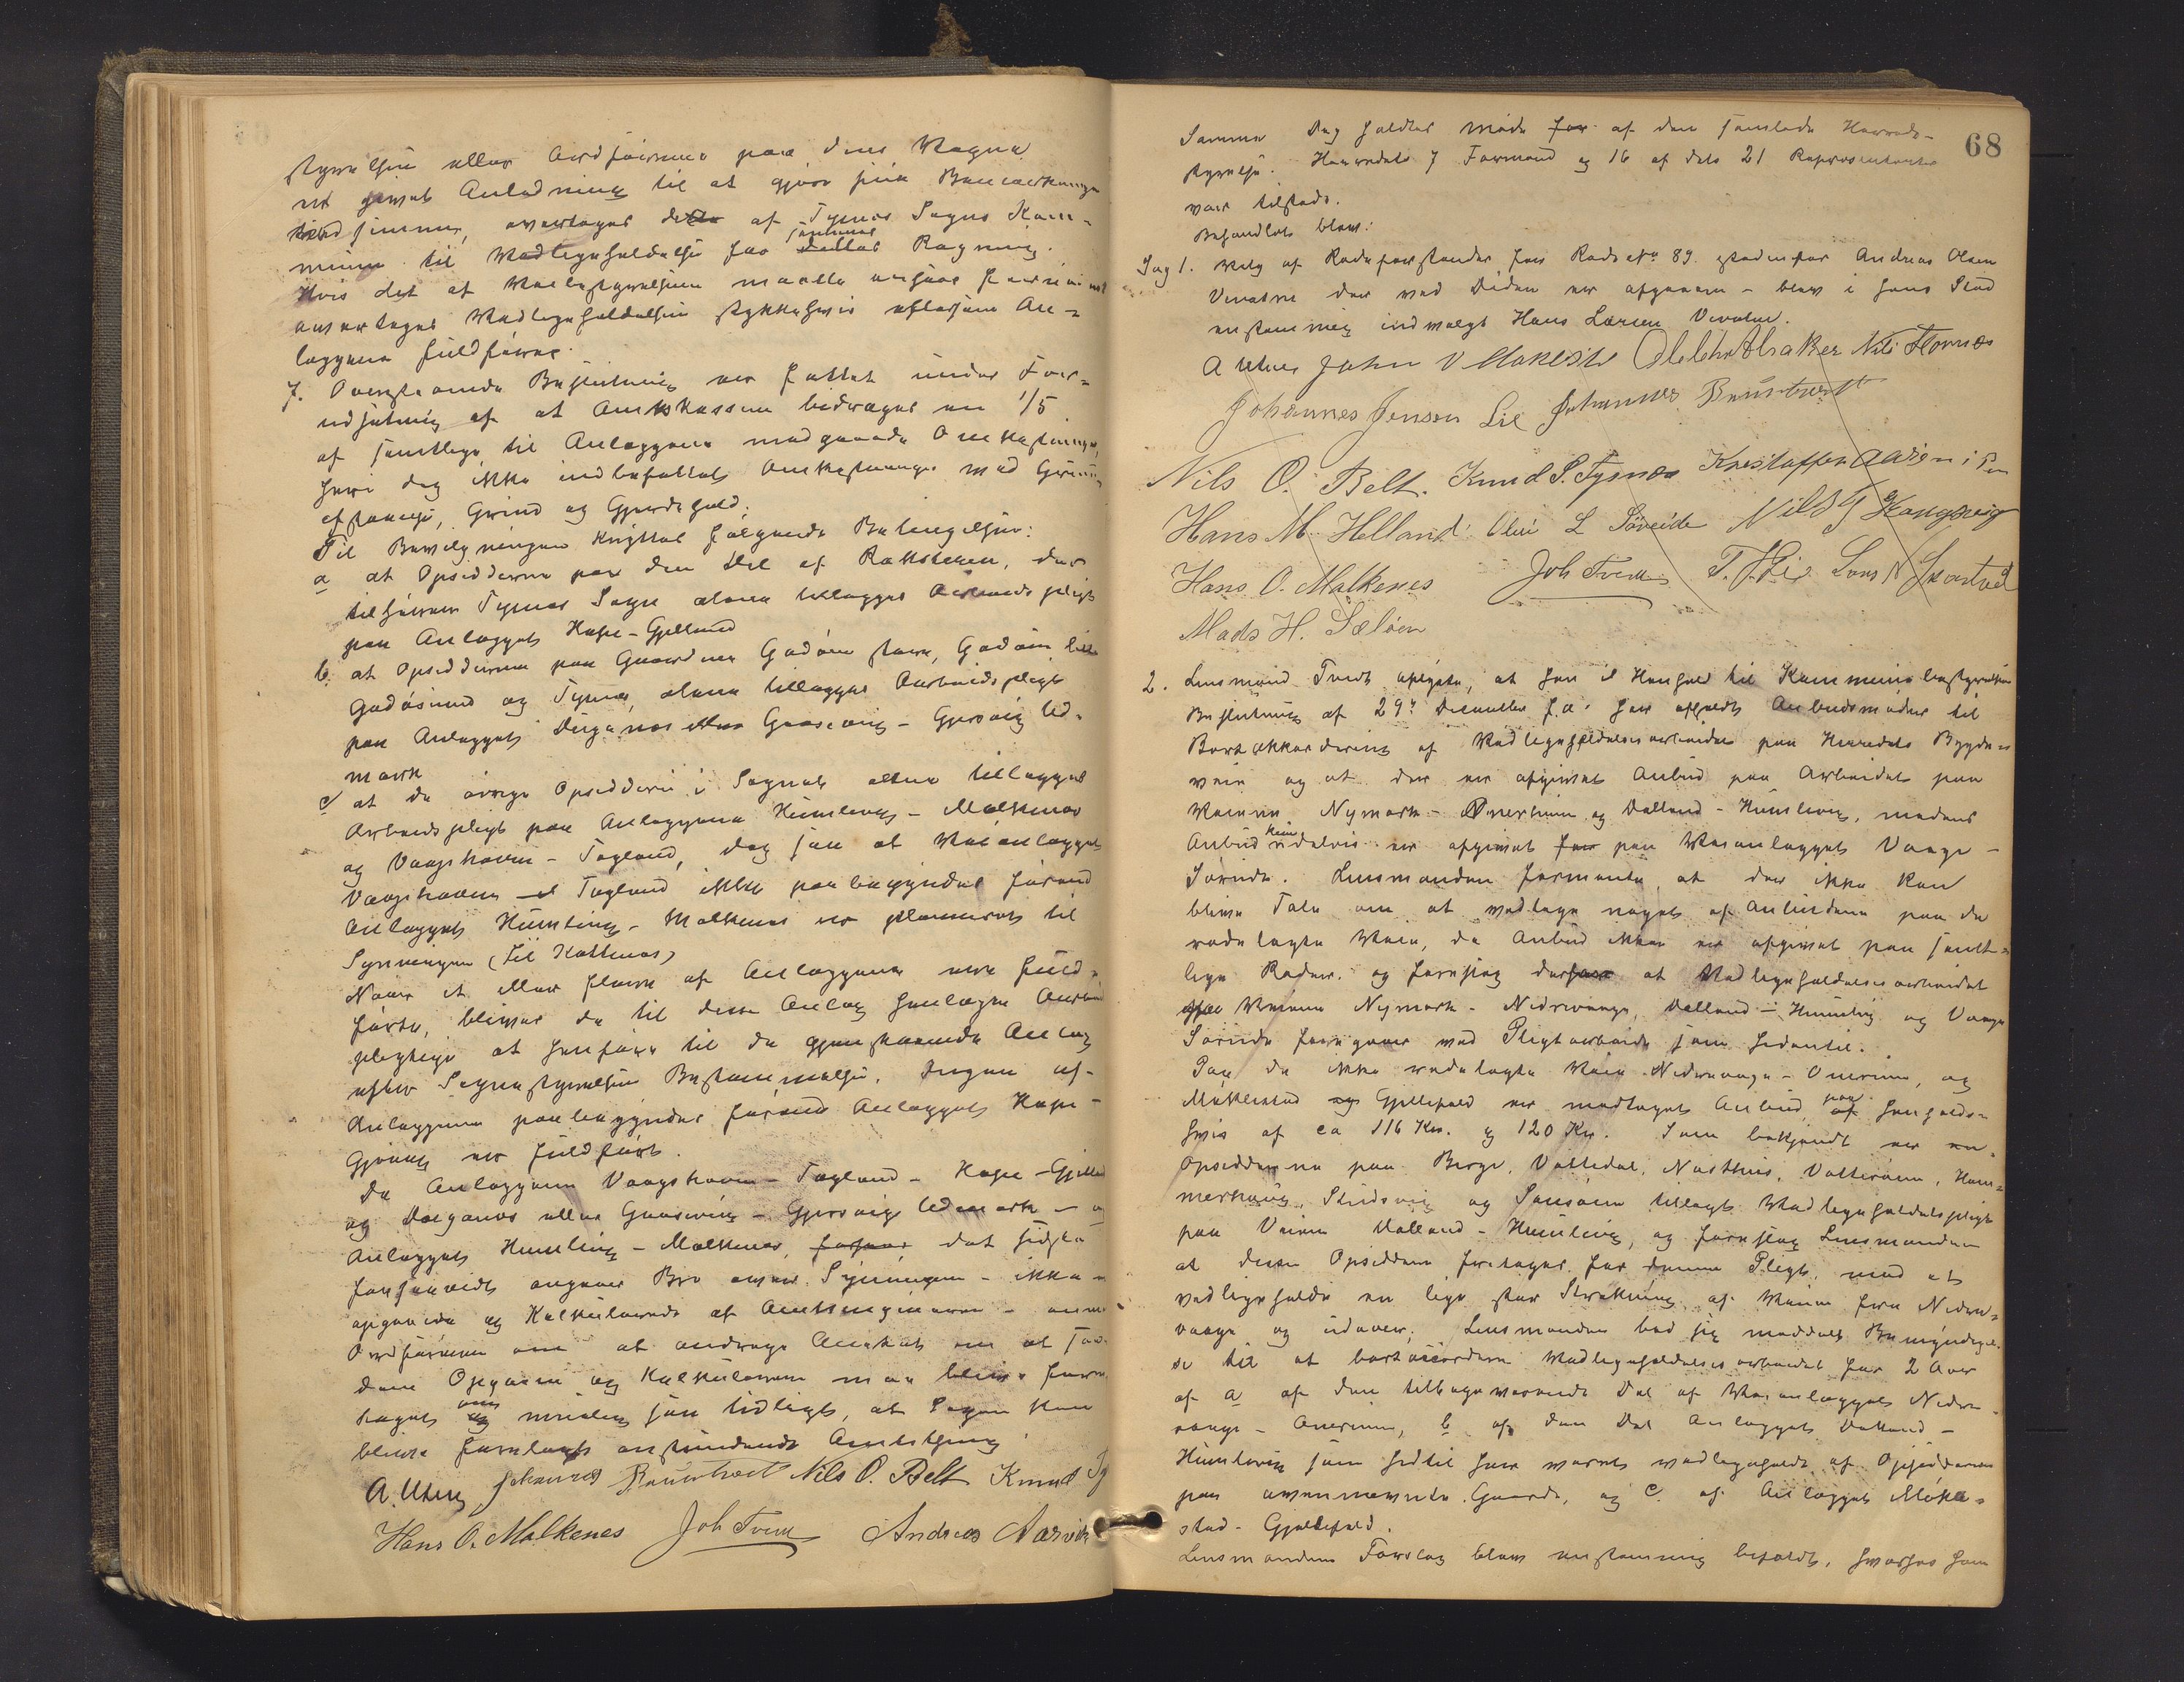 styrelsen eller Ordføreren paa dens Vegne
er givet Anledning til at gjøre sine Bemærkninger
ved samme, overtages dette af Tysnes Sogns Kom-
mune til Vedligeholdelse for sammes Regning.
Hvis det af Veibestyrelsen maatte ansees
overtages Vedligeholdelsen stykkevis eftersom An-
læggene fuldføres.
7. Ovenstaaende Beslutning er fattet under For-
udsætning af at Amtskassen bidrager en 1/5
af samtlige til Anlæggene medgaaende Omkostninger,
heri dog ikke indbefattet Omkostninger med Grund-
afstaaelse, Grind og Gjerdehold.
Til Bevilgningen knyttes følgende Betingelser:
a at Opsidderne paa den Del af Rakstenen, der
tilhører Tysnes Sogn alene tillægges Arbeidspligt
paa Anlægget Hope-Gjelland
b. at Opsidderne paa Gaardene Godøen store, Godøen lille
Godøsund og Tysnes, alene tillægges Arbeidspligt
paa Anlægget Duganes eller Gaasevig - Gjersvig Led-
mark
c at de øvrige Opsiddere i Sognet alene tillægges
Arbeidspligt paa Anlæggene Humlevig - Malkenes
og Vaagshavn - Tegland, dog saa at Veianlægget
Vaagshavn - Tegland ikke paabegyndes førend
Anlægget Humlevig - Malkenes er planeret til
Synningen (til Kattnes)
Naar et eller flere af Anlæggene ere fuld-
førte, bliver de til disse Anlæg henlagte Arbeids
pligtige at henføre til de gjenstaaende Anlæg
efter Sognestyrelsens Bestemmelse. Ingen af
Anlæggene paabegyndes førend Anlægget Hope-
Gjøvaag er fuldført.
Da Anlæggene Vaagshavn - Tegland - Hope - Gjelland
og Duganes eller Gaasevig - Gjersvig Ledmark - og
Anlægget Humlevig - Malkenes, det sidste
forsaavidt angaar Bro over Synningen - ikke er
opgaaede og kalkulerede af Amtsingeniøren - anmodes
Ordføreren om at andrage Amtet om at saa-
dan Opgaaen og Kalkulation maa blive fore-
taget om muligt saa tidligt, at Sagen kan
blive forelagt anstundende Amtsthing.
A. Uthes Johannes Bruntveit Nils O. Belt Knud Ty
Hans O. Malkenes Joh Tveit Andreas Aarvik
68
Samme Dag holdtes Møde for af den samlede Herreds-
styrelse. Herredets 7 Formænd og 16 af dets 21 Repræsentanter
var tilstede.
Behandlet blev:
Sag 1. Valg af Rodeforstander for Rode No 89. istedenfor Andreas Olsen
Vevatne der ved Døden er afgaaen - blev i hans Sted
enstemmig indvalgt Hans Larsen Vevatne.
A Uthes John V Møkleste Ole Chr Abraker Nils Flornes
Johannes Jensen Lie Johannes Bruntveit
Nils O. Belt. Knud S. Tysnes Kristoffer
Hans M. Helland Ole L Søreide Nils J Kongsvig
Hans O. Malkenes Joh Tveit T. Hei Lars N Skartved
Mads H. Sæløen
2. Lensmand Tveit oplyste, at han i Henhold til Kommunebestyrelsens
Beslutning af 29de December f.a. har afholdt Anbudsmøder til
Bortakkordering af Vedligeholdelsesarbeidet paa Herredets Bygde-
veie og at der er afgivet Anbud paa Arbeidet paa
Veiene Nymark - Onereim og Dalland - Humlevig, medens
Anbud kun delvis er afgivet paa Veianlægget Vaage -
Søreide. Lensmanden formente at der ikke kan
blive Tale om at vedtage noget af Anbudene paa de
rodelagte Veie, da Anbud ikke er afgivet paa samt-
lige Roder. og foreslog derfor at Vedligeholdelsesarbeidet
paa Veiene Nymark - Nedrevaage, Dalland - Humlevig og Vaage
Søreide foregaar ved Pligtarbeide som hidentil.
Paa de ikke rodelagte Veie Nedrevaage - Onereim, og
Møklestad og Gjellefald er modtaget Anbud paa henholds-
vis af ca 116 Kr. og 120 Kr. Som bekjendt er en.
Opsidderne paa Berge, Vattedal, Nasthus, Vatteroen, Ham-
merhaug, Stidsvig og Sonsøen tillagt Vedligeholdelsespligt
paa Veien Dalland - Humlevig, og foreslog Lensmanden
at disse Opsiddere fritages for denne Pligt, mod at
vedligeholde en lige stor Strækning af Veien fra Nedre-
vaage og udover. Lensmanden bad sig meddelt Bemyndigel-
se til at bortaccordere Vedligeholdelsesarbeidet for 2 Aar
af a af den tilbageværende Del af Veianlægget Nedre-
vaage - Onereim, b af den Del Anlægget Dalland -
Humlevig som hidtil har været vedligeholdt af Opsidderne
paa ovennævnte Gaarde, og c. af Anlægget Møkle-
stad - Gjellefald.
Lensmandens Forslag blev enstemmig bifaldt, hvorhos han